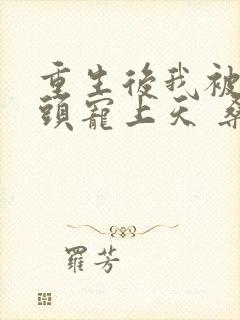 重生後我被
頭寵上天
羅芳